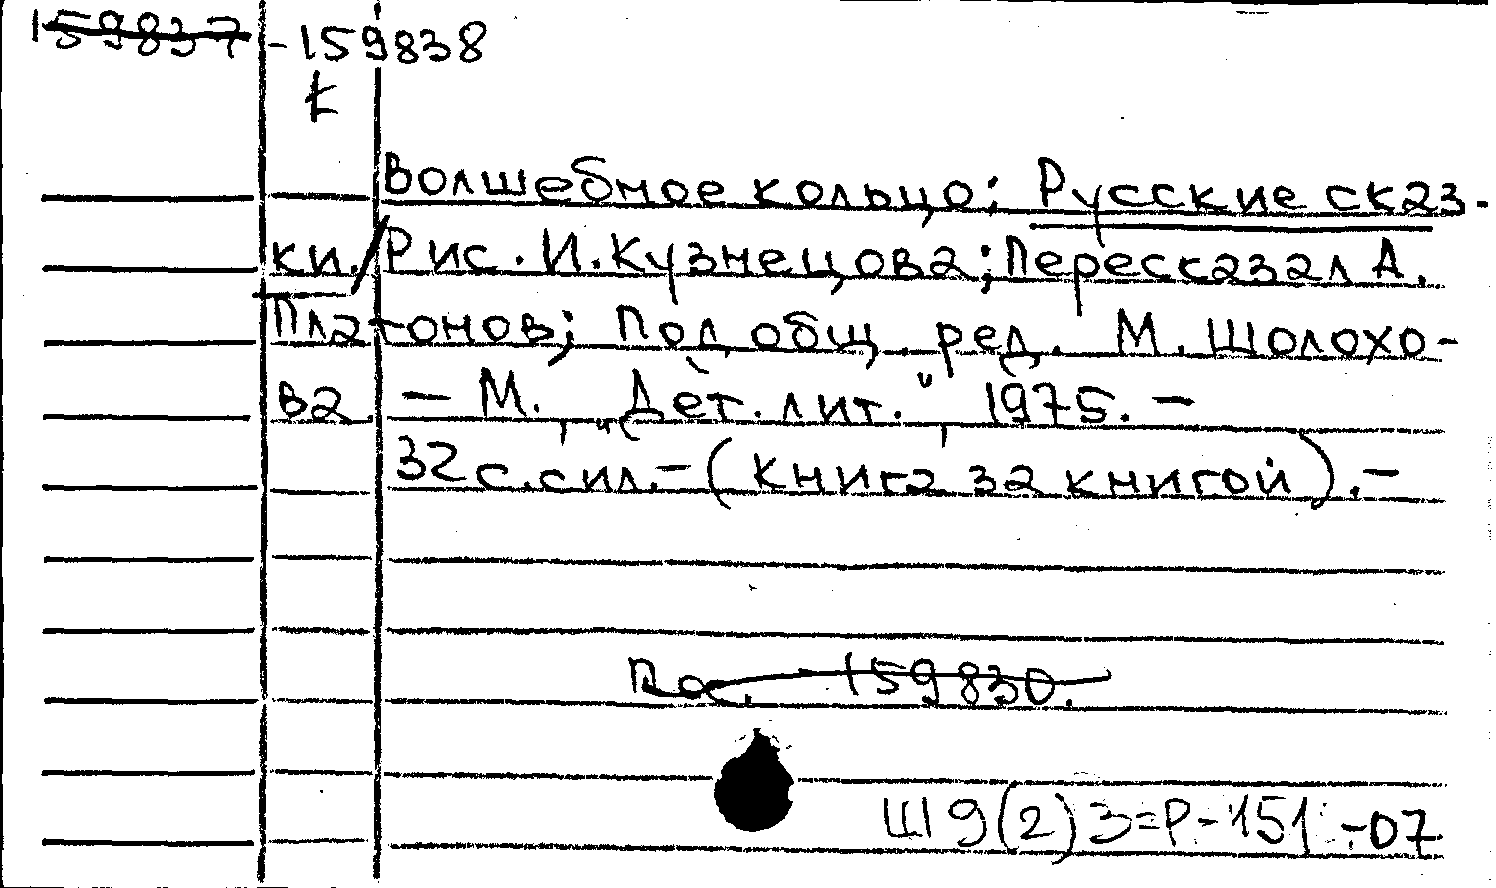 159837 -159838
k
Волшебное кольцо; Русские сказ-
ки./Рис. И. Кузнецова; Пересказал А.
Платонов; Под общ. ред. М. Шолохо-
ва. – М., "Дет. лит.", 1975. –
32 с. с ил. – (книга за книгой). –
Пос. 159830.
Ш9(2)3=Р-151 -07